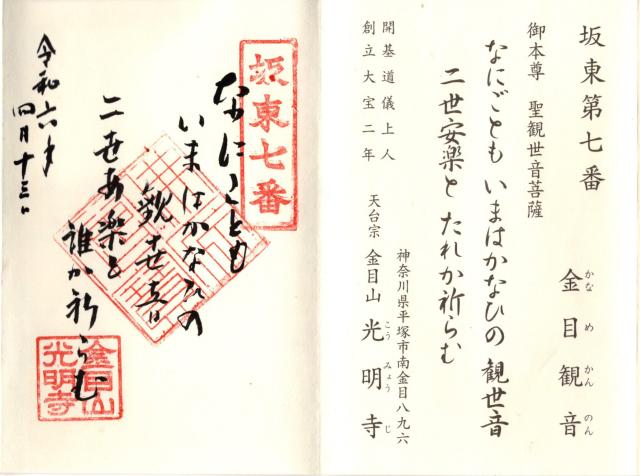 坂東第七番
金目観音
かなめかんのん
御本尊 聖観世音菩薩
なにごとも いまはかなひの 観世音
二世安楽と たれか祈らむ
開基道儀上人
創立大宝二年
神奈川県平塚市南金目八九六
天台宗 金目山 光明寺
こうみょうじ
坂東七番
なにことも
いまはかなひの
観世音
二世安楽と
誰か祈らむ
令和六年
四月十三日
金目山
光明寺